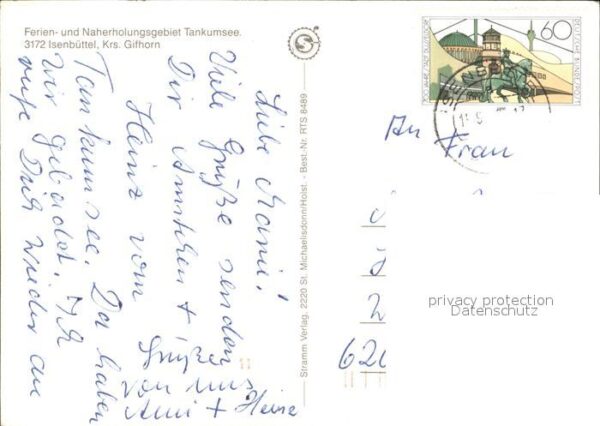 Ferien- und Naherholungsgebiet Tankumsee.
3172 Isenbüttel, Krs. Gifhorn
Liebe
Viele Grüße senden
Dir +
Heinz vom
Tankumsee. Da haben
wir gebadet. Ich
rufe Dich wieder an
Grüße
von uns
+
Stramm Verlag, 2220 St. Michaelisdonn/Holst. - Best.-Nr. RTS 8489
700 JAHRE STADT DÜSSELDORF
60
DEUTSCHE BUNDESPOST
An
Frau
2
620
privacy protection
Datenschutz